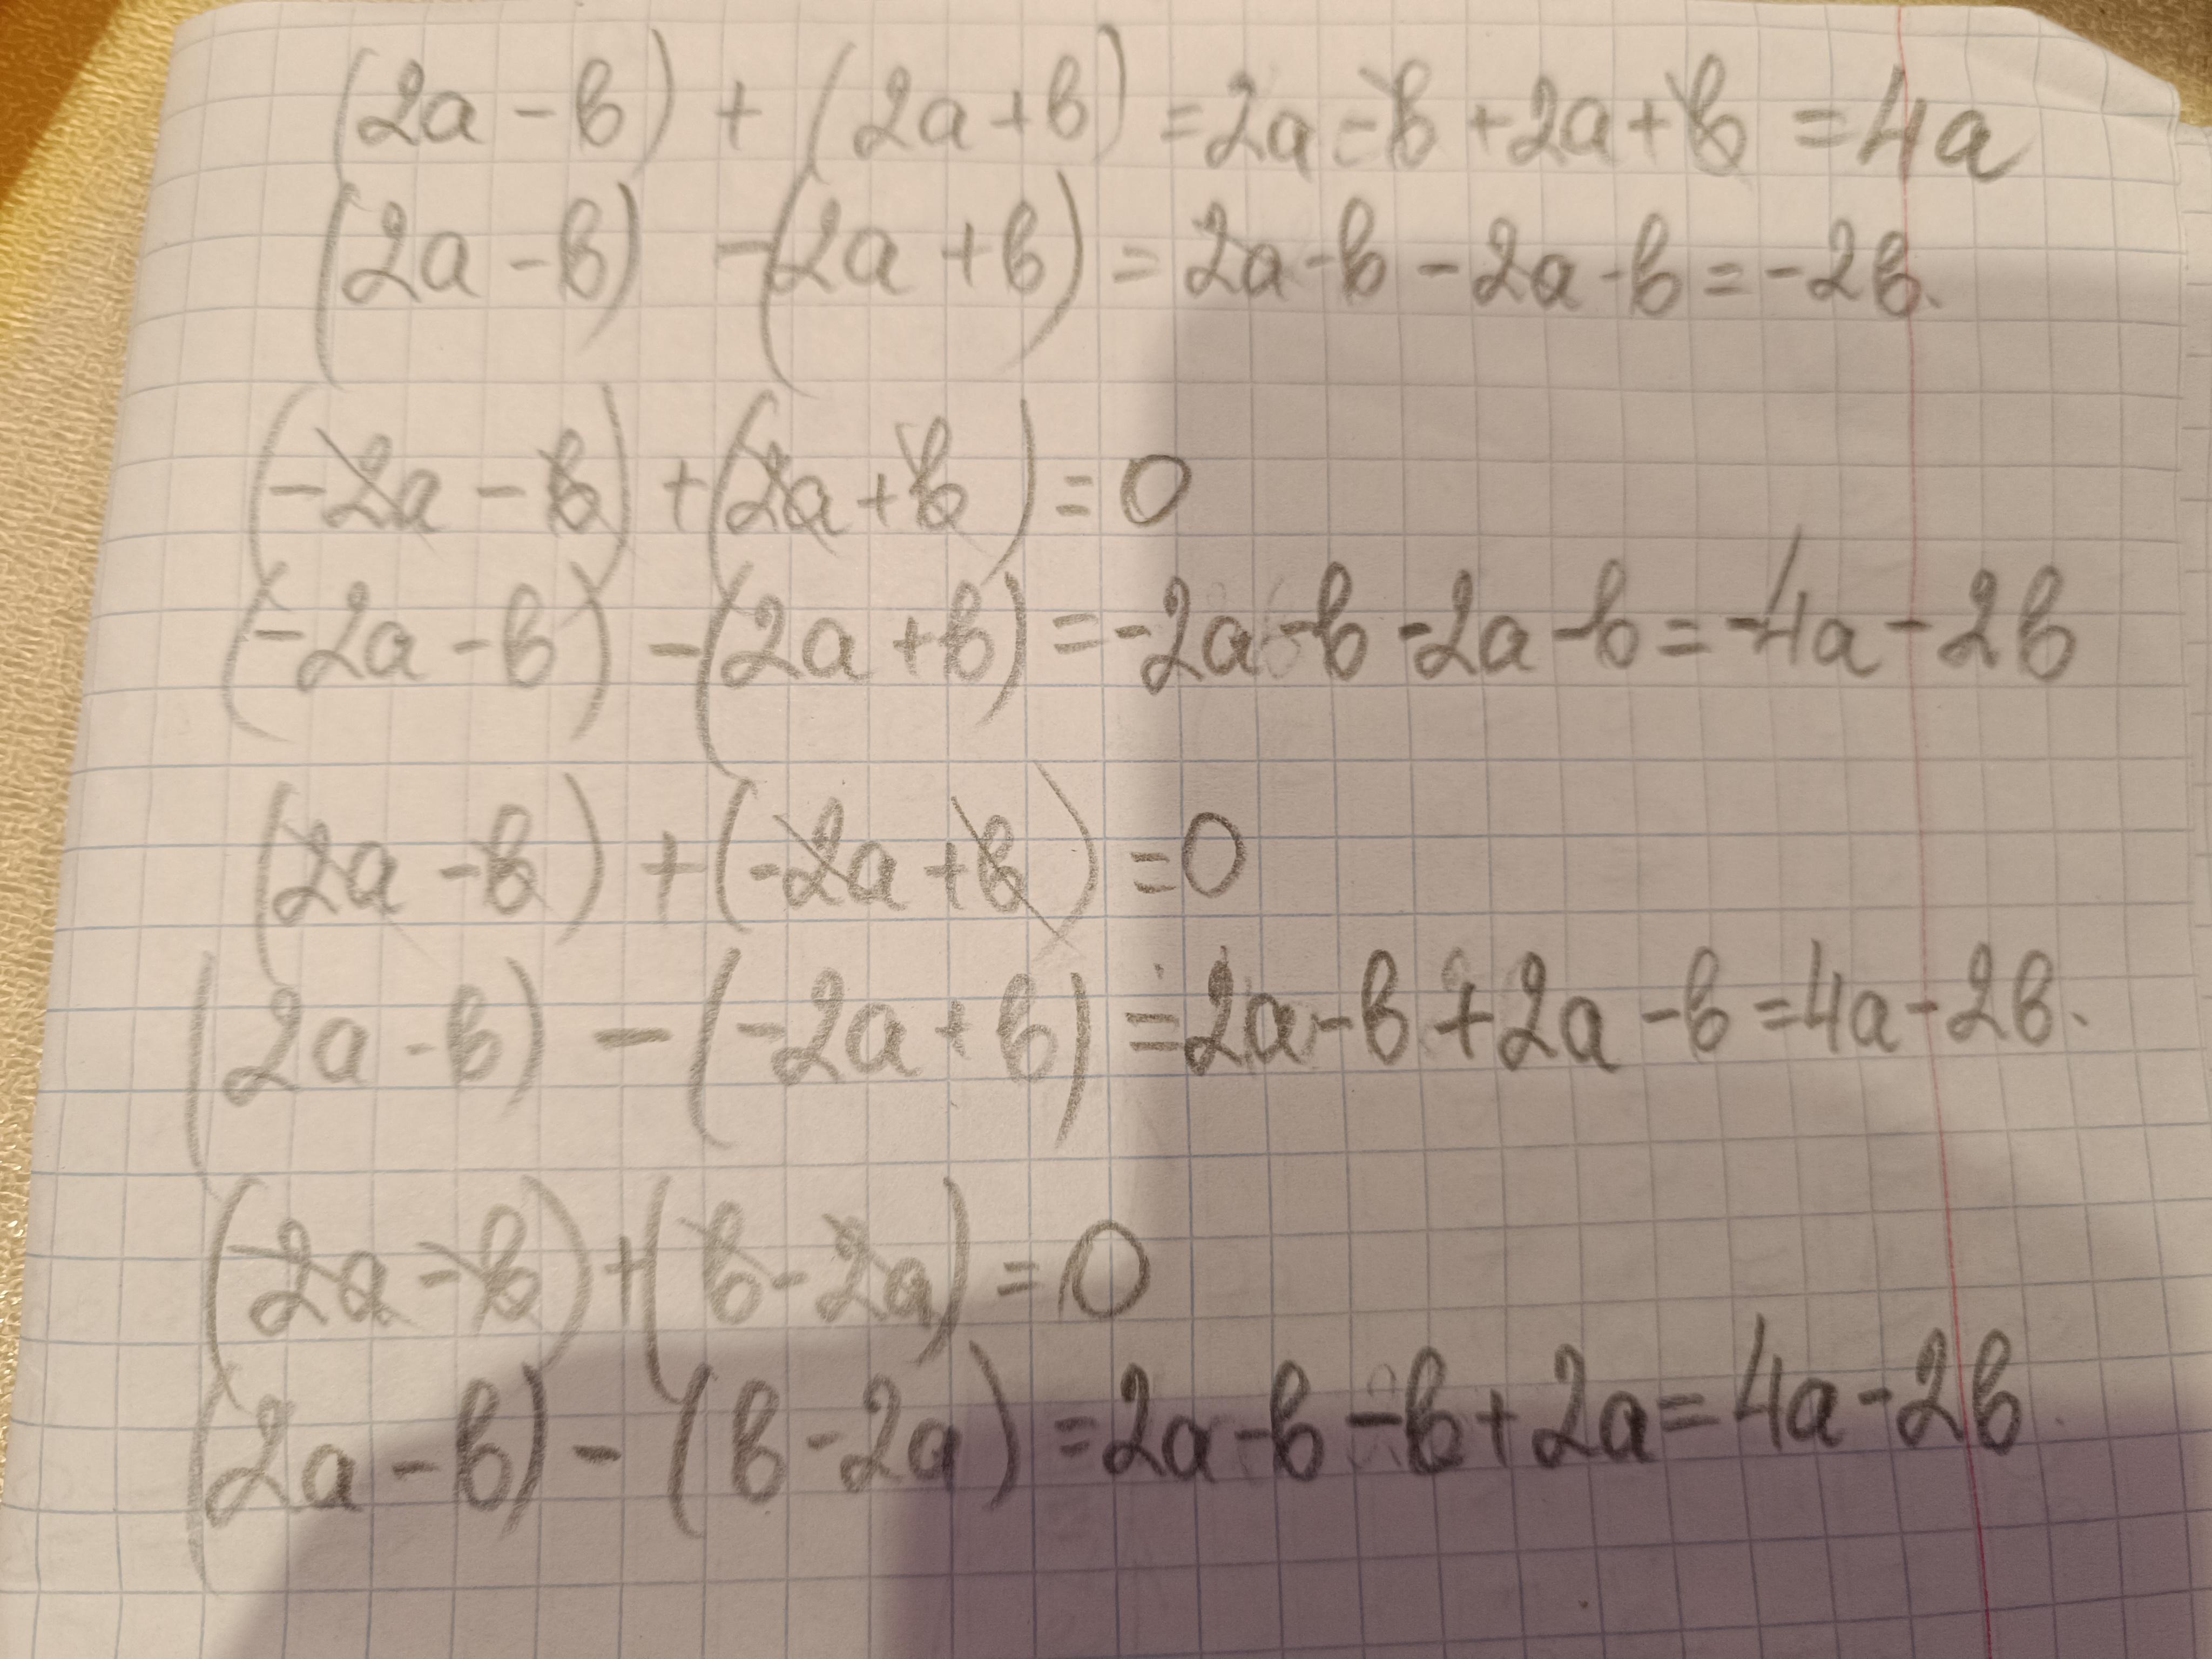 (2a - b) + (2a + b) = 2a - b + 2a + b = 4a
(2a - b) - (2a + b) = 2a - b - 2a - b = -2b.
(-2a - b) + (2a + b) = 0
(-2a - b) - (2a + b) = -2a - b - 2a - b = -4a - 2b
(2a - b) + (-2a + b) = 0
(2a - b) - (-2a + b) = 2a - b + 2a - b = 4a - 2b.
(2a - b) + (b - 2a) = 0
(2a - b) - (b - 2a) = 2a - b - b + 2a = 4a - 2b